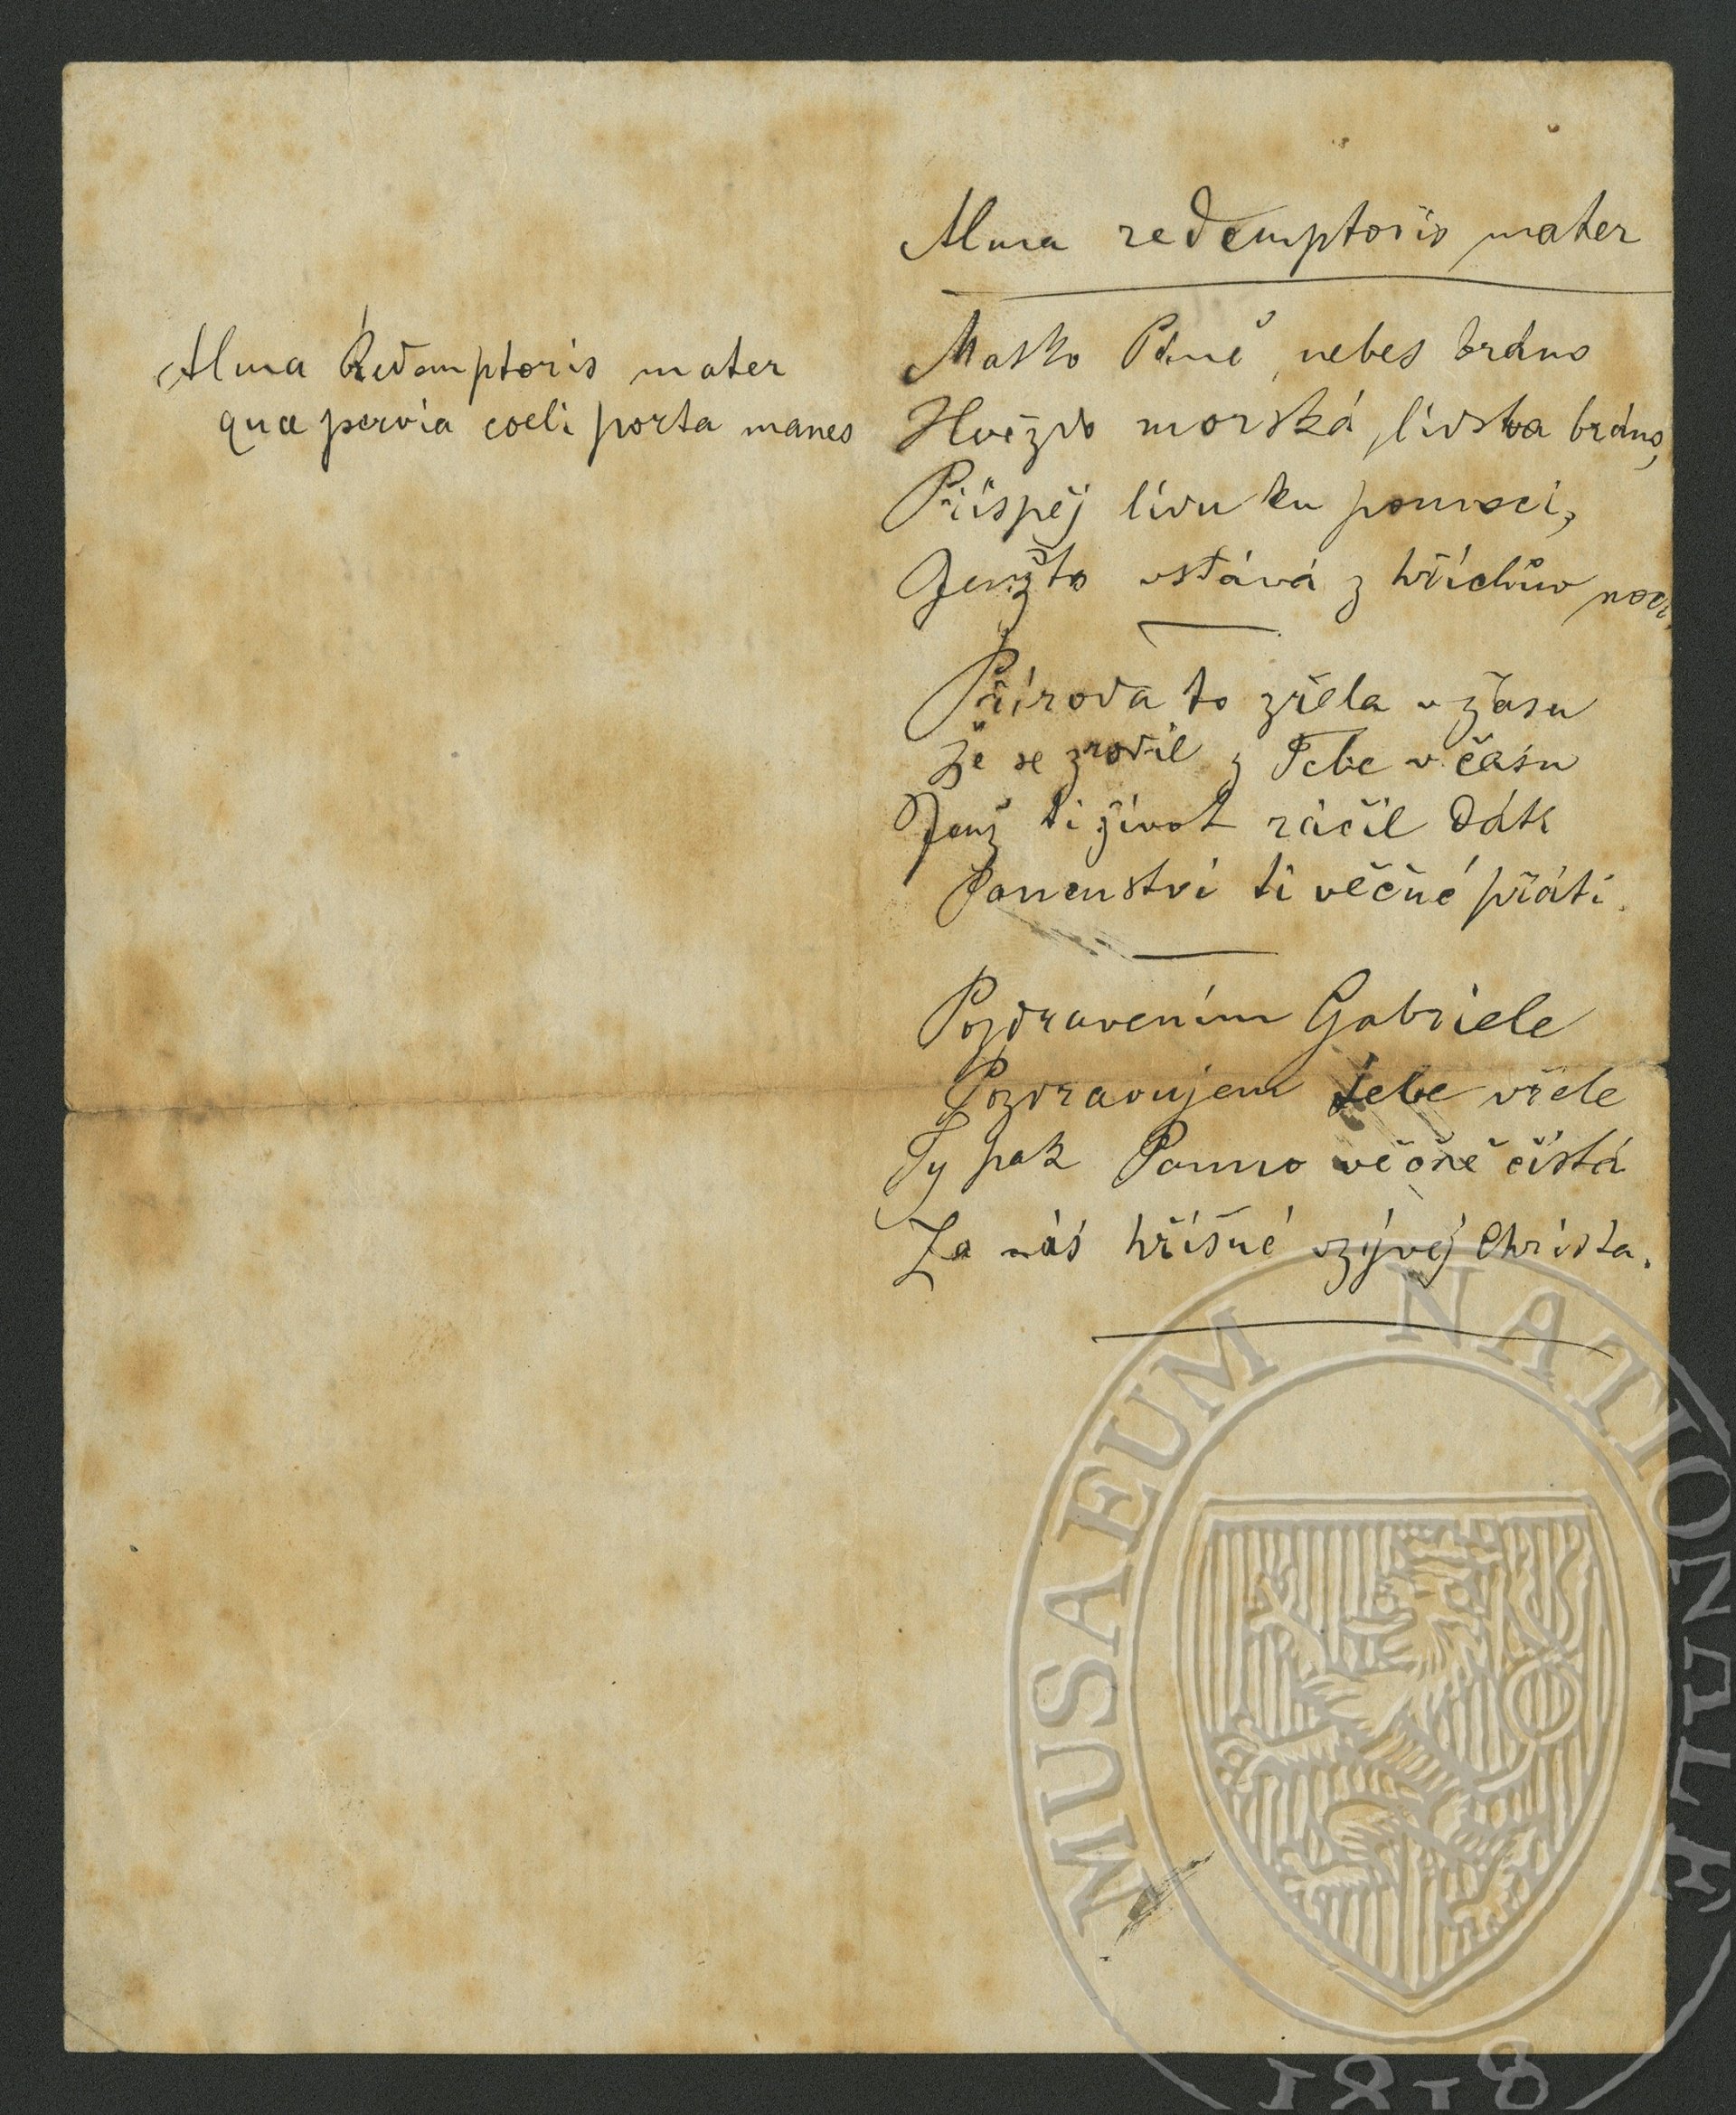 Alma redemptoris mater
Alma Redemptoris mater
quae pervia coeli porta manes
Matko Páně, nebes bráno
Hvězdo mořská, lidstva bráno,
Přispěj lidu ku pomoci,
Jenžto vstává z hříchův noci.
Příroda to zřela v žasu
Že se zrodil z Tebe v času
Jenž ti život ráčil dáti
Panenství ti věčné přáti.
Pozdravením Gabriele
Pozdravujem tebe vřele
Ty pak Panno věčně čistá
Za nás hříšné vzývej Christa.
MUSAEUM NATIONALE
1818